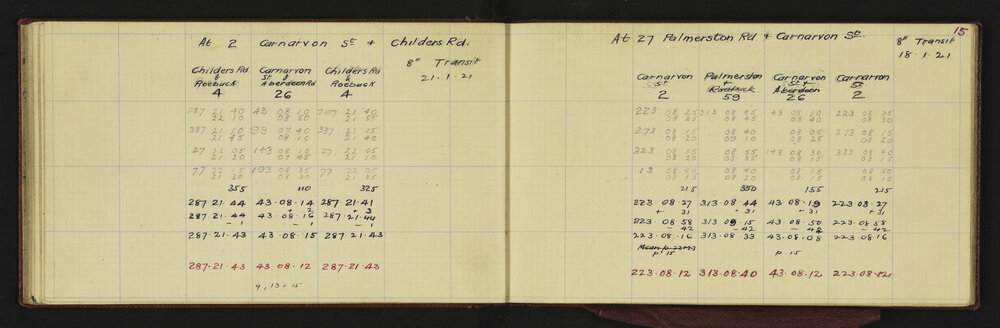 At 2 Carnarvon St & Childers Rd.
8" Transit
21.1.21
Childers Rd & Roebuck 4
Carnarvon St & Aberdeen Rd 26
Childers Rd & Roebuck 4
287 21 40 43 08 10 287 21 40
22 10 08 50 21 55
337 21 10 93 07 40 337 21 15
21 45 08 10 21 40
27 22 05 143 08 10 27 22 05
21 20 07 45 21 10
77 22 15 193 08 35 77 22 05
21 30 08 30 21 35
355 110 325
287.21.44 43.08.14 287.21.41
+ 2 + 3
287.21.44 43.08.16 287.21.44
- 1 - 1 - 1
287.21.43 43.08.15 287.21.43
287.21.43 43.08.12 287.21.43
9, 13 & 15
15
At 27 Palmerston Rd & Carnarvon St.
8" Transit
18.1.21
Carnarvon St 2
Palmerston & Roebuck 59
Carnarvon St & Aberdeen 26
Carnarvon St. 2
223 08 25 313 08 45 43 08 10 223 08 35
08 25 08 45 08 40 08 30
273 08 15 08 40 08 05 273 08 15
08 20 09 10 08 25 08 20
323 08 55 08 55 143 08 30 323 08 40
08 20 08 35 08 15 08 15
13 08 40 08 40 08 15 08 50
08 15 08 20 08 15 08 10
215 350 155 215
223 08 27 313.08.44 43.08.19 223.08.27
+ 31 - 31 - 31 + 31
223 08 58 313 09.15 43.08.50 223.08.58
- 42 - 42 - 42 - 42
223.08.16 313.08.33 43.08.08 223.08.16
p. 15 p 15
223.08.12 313.08.40 43.08.12 223.08.12